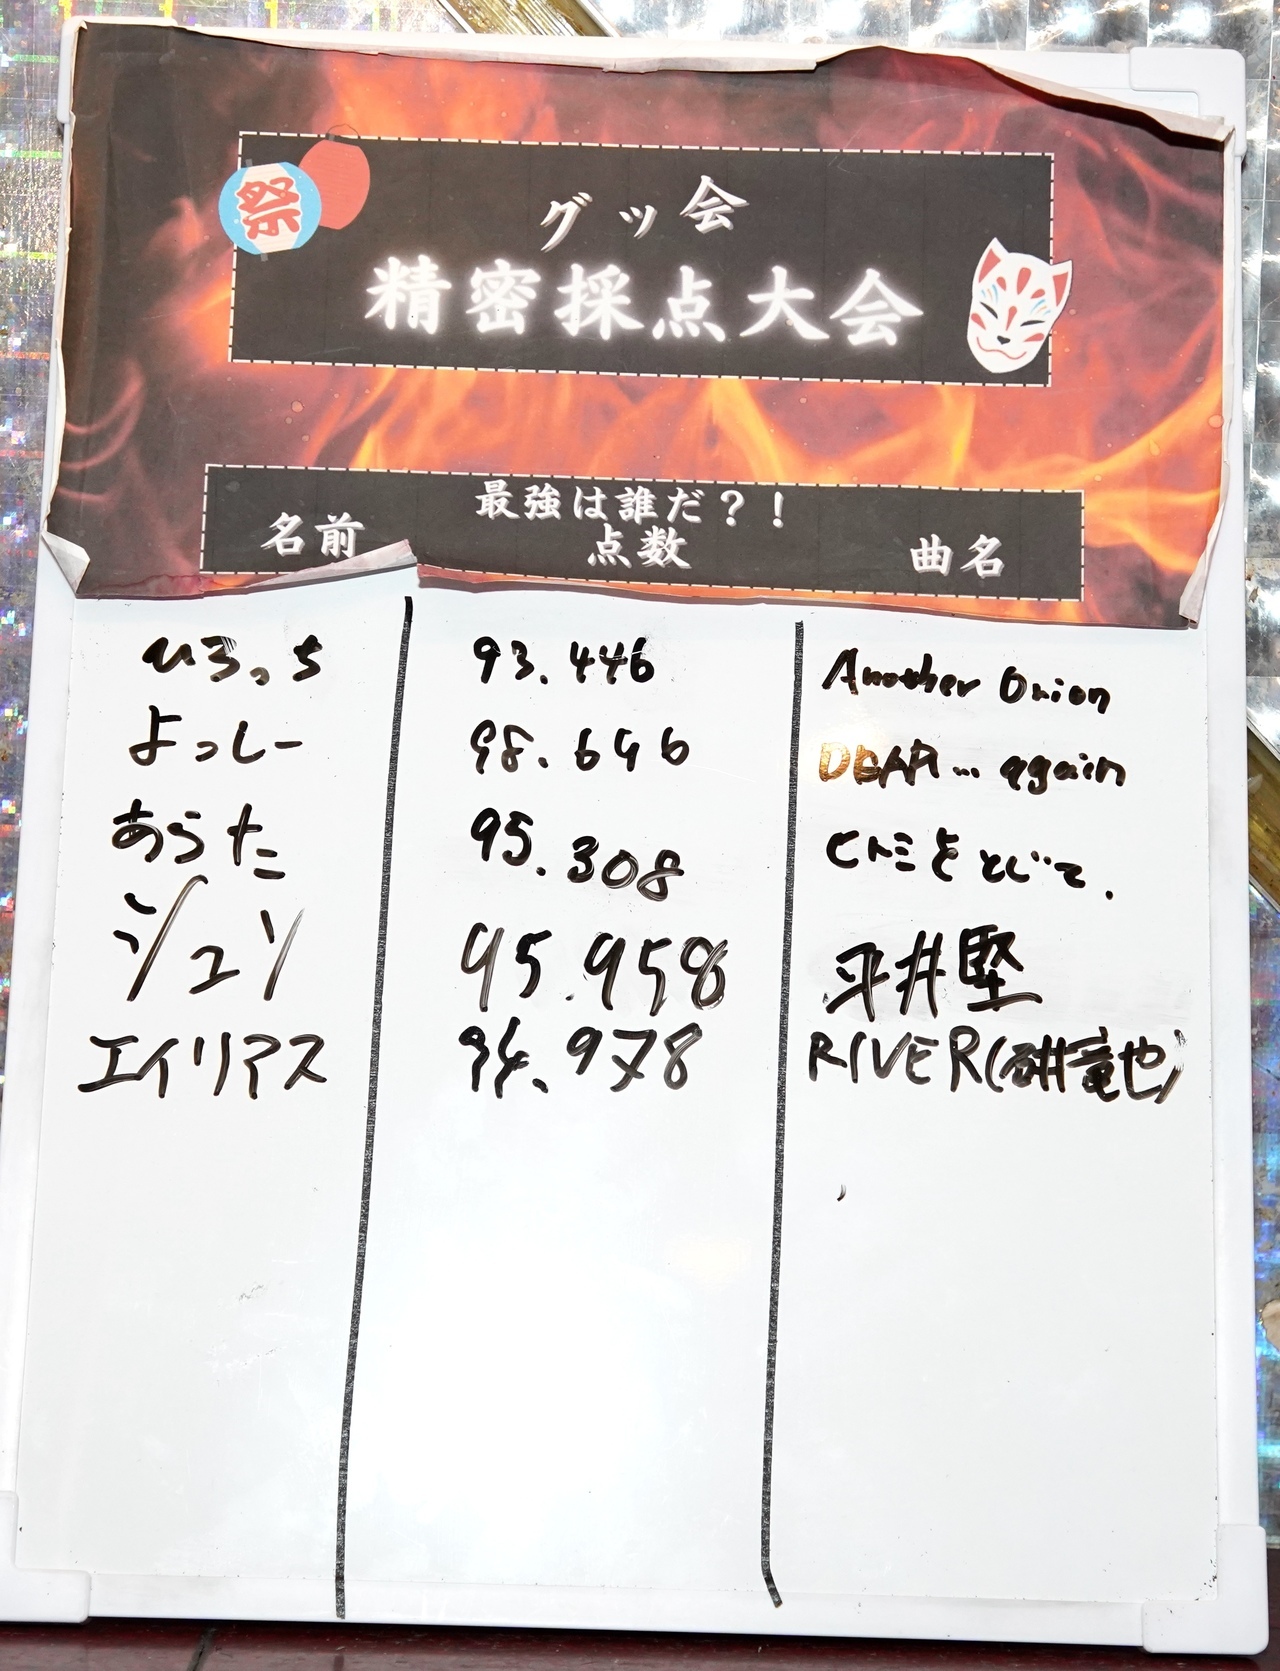 祭
グッ会
精密採点大会
最強は誰だ?!
名前 点数 曲名
ひろっち 93.446 Another Orion
よっしー 98.646 DEAR... again
あらた 95.308 ヒトミをとじて.
シュン 95.958 平井堅
エイリアス 94.978 RIVER(碓井竜也)